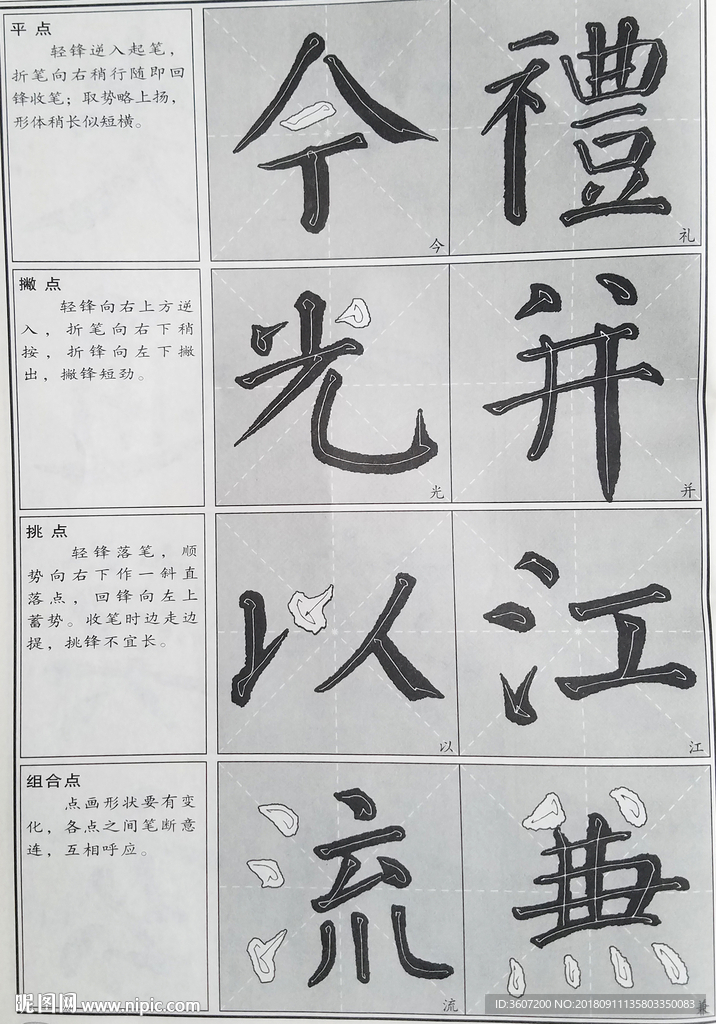 平点
轻锋逆入起笔，
折笔向右稍行随即回
锋收笔；取势略上扬，
形体稍长似短横。
今
今
禮
礼
撇点
轻锋向右上方逆
入，折笔向右下稍
按，折锋向左下撇
出，撇锋短劲。
光
光
并
并
挑点
轻锋落笔，顺
势向右下作一斜直
落点，回锋向左上
蓄势。收笔时边走边
提，挑锋不宜长。
以
以
江
江
组合点
点画形状要有变
化，各点之间笔断意
连，互相呼应。
流
流
兼
兼
昵图网 www.nipic.com
ID:3607200 NO:20180911135803350083